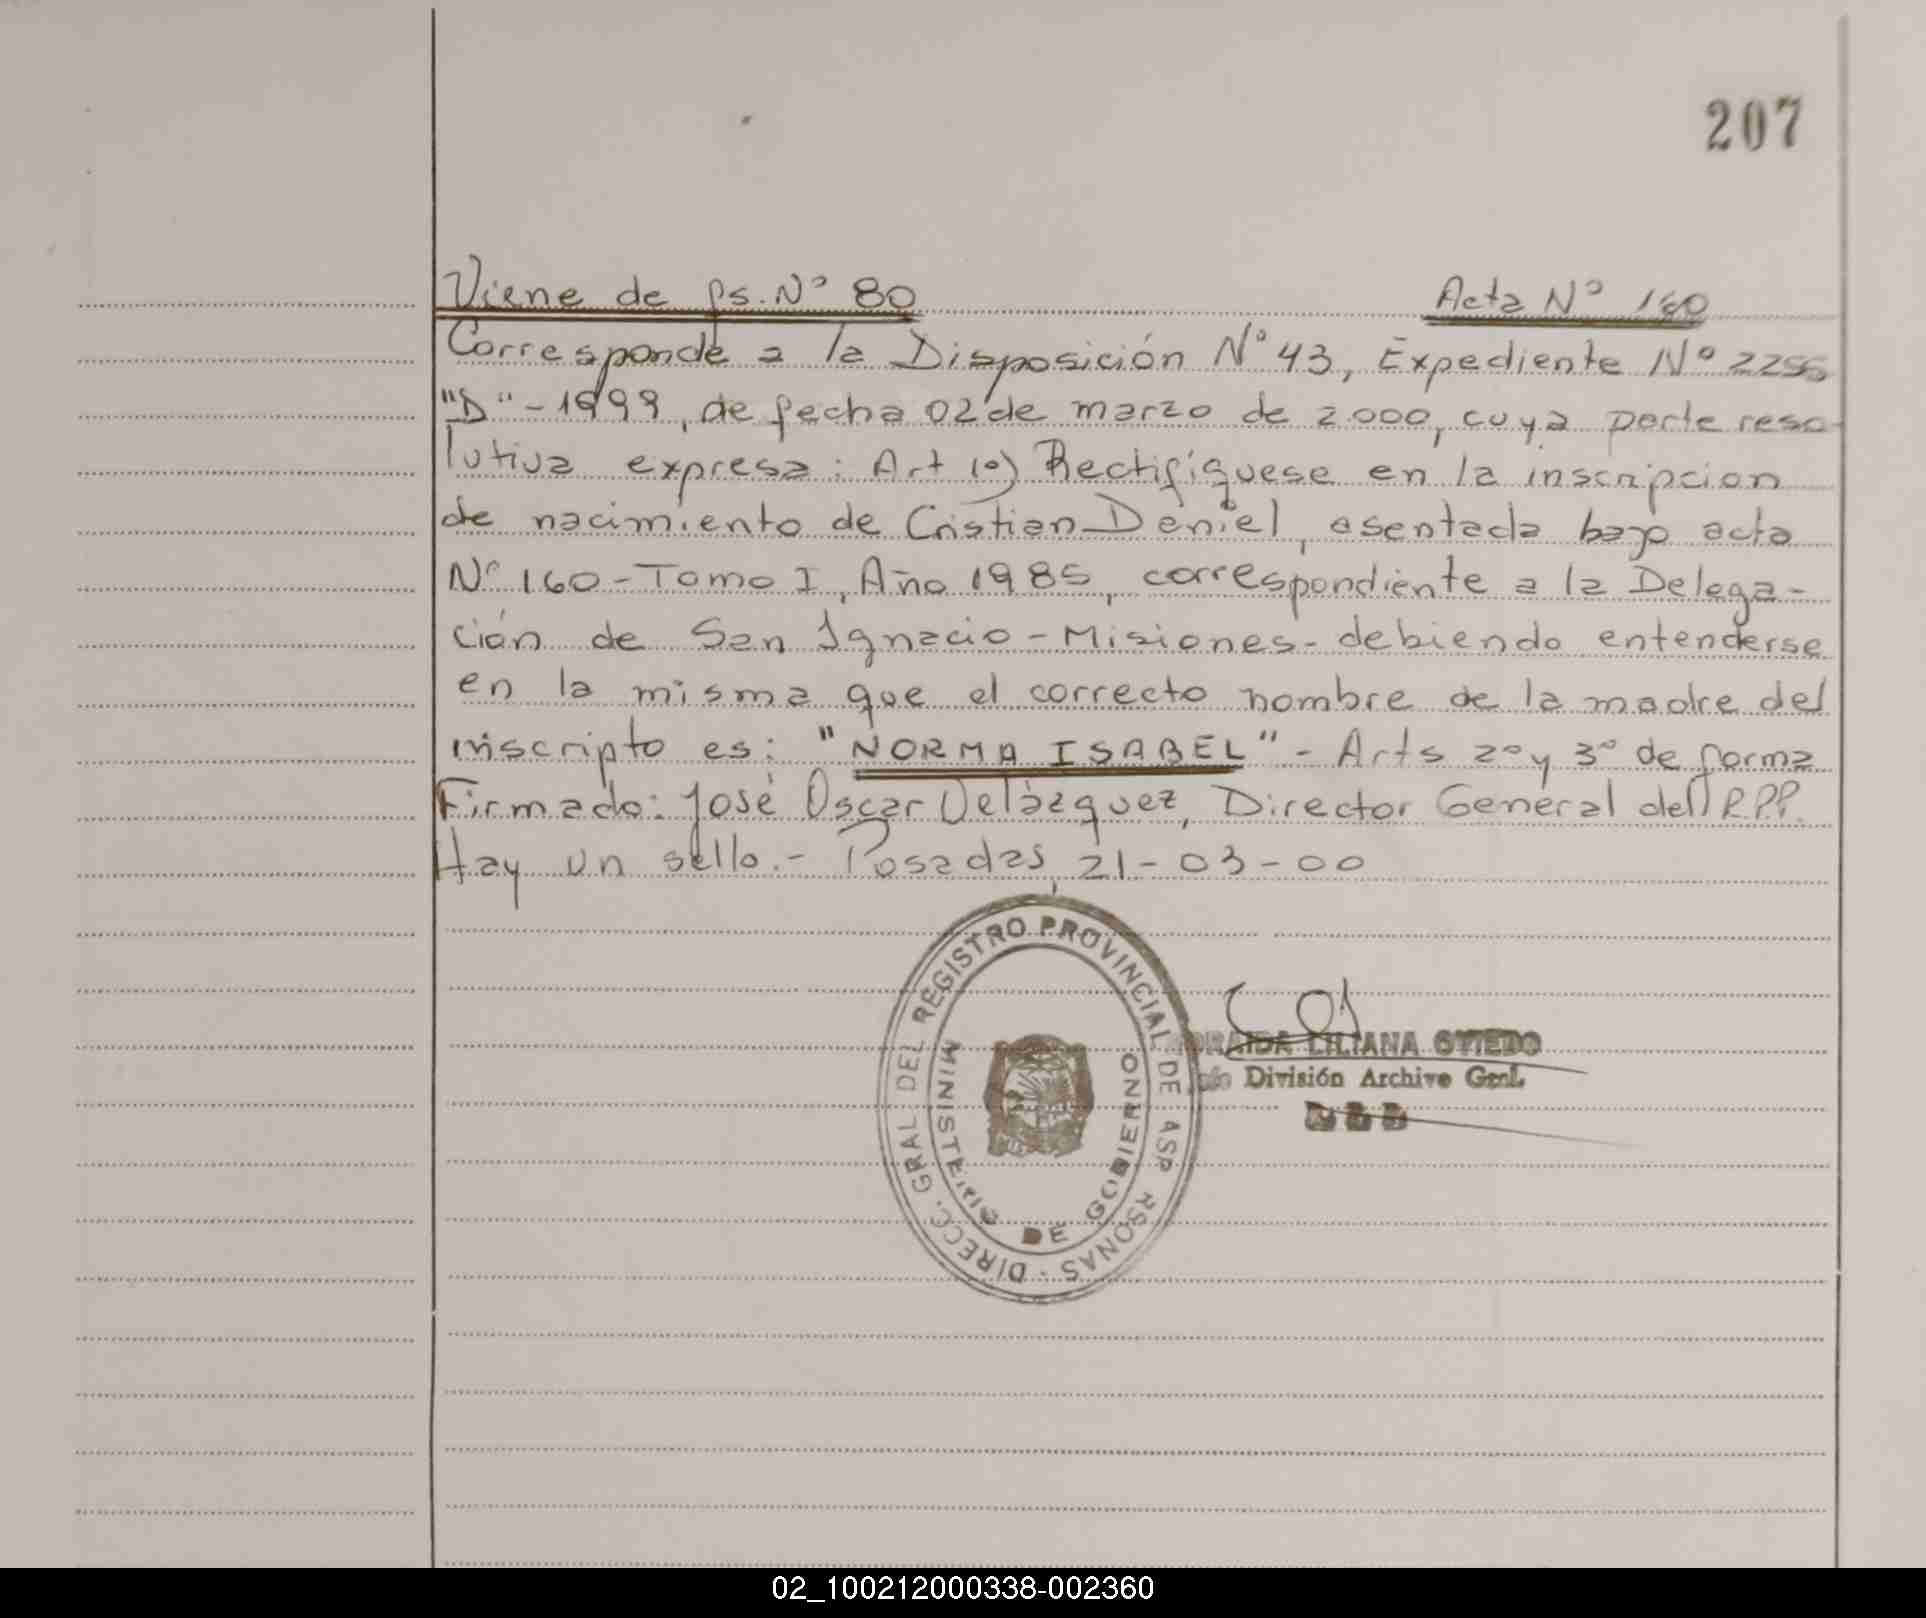 207
Viene de fs. Nº 80 Acta Nº 160
Corresponde a la Disposición Nº 43, Expediente Nº 2256
"D" - 1999, de fecha 02 de marzo de 2.000, cuya parte reso-
lutiva expresa: Art 1º) Rectifíquese en la inscripcion
de nacimiento de Cristian Daniel, asentada bajo acta
Nº 160 - Tomo I, Año 1985, correspondiente a la Delega-
ción de San Ignacio - Misiones - debiendo entenderse
en la misma que el correcto nombre de la madre del
inscripto es: "NORMA ISABEL" - Arts 2º y 3º de forma
Firmado: José Oscar Velázquez, Director General del R.P.P.
Hay un sello. - Posadas, 21-03-00
DIRECC. GRAL DEL REGISTRO PROVINCIAL DE
RSONAS
MINISTERIO DE GOBIERNO
LILIANA OVIEDO
División Archivo Gral.
02_100212000338-002360